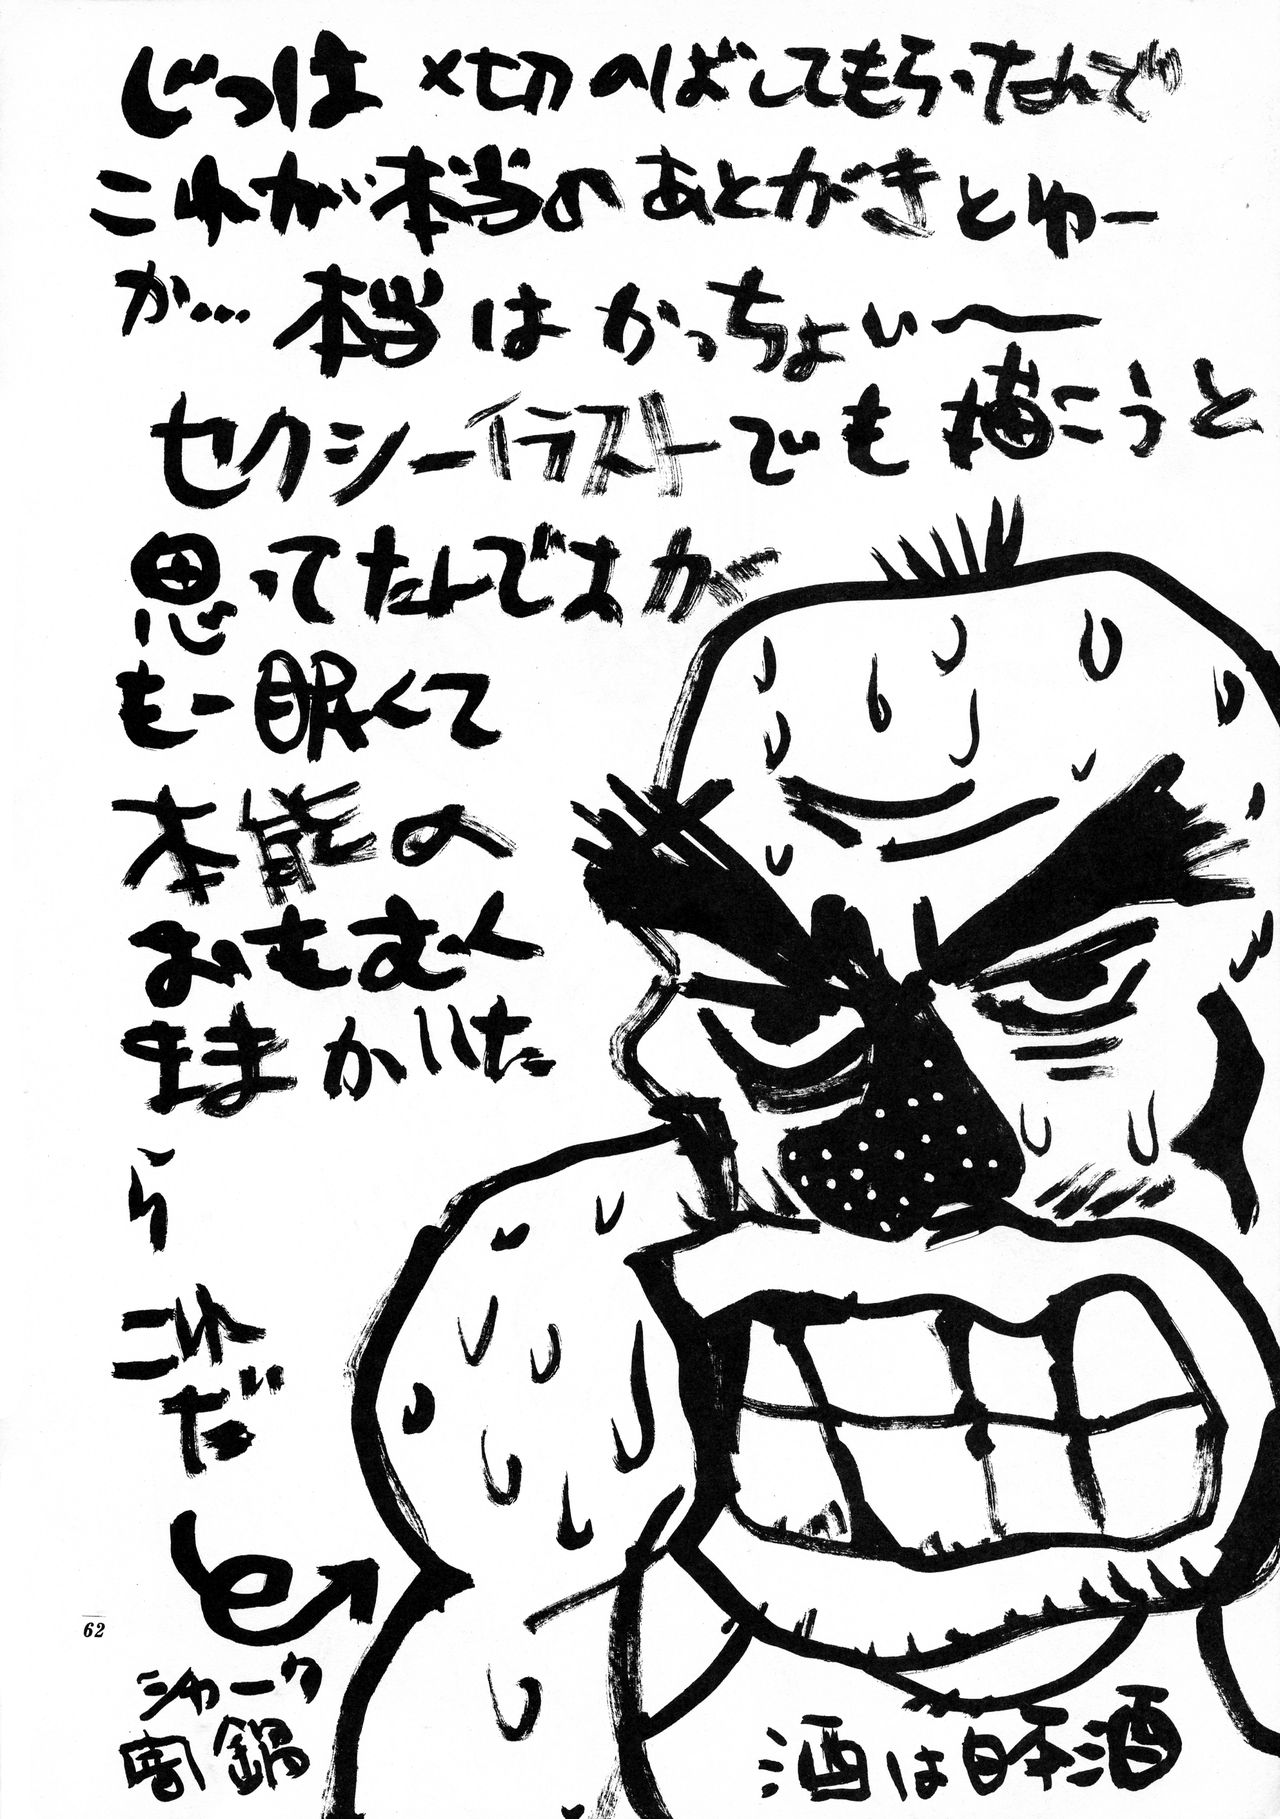 じつは〆切のばしてもらったんで
これが本当のあとがきとゆー
か…本当はかっちょいい〜
セクシーイラストでも描こうと
思ってたんですが
もー眠くて
本能の
おもむく
ままかいた
ら
これだ
シャーク
鍋
酒は日本酒
62